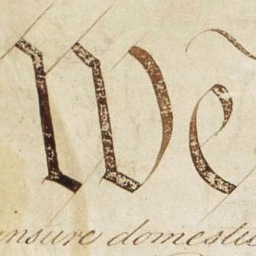 We
insure domestic